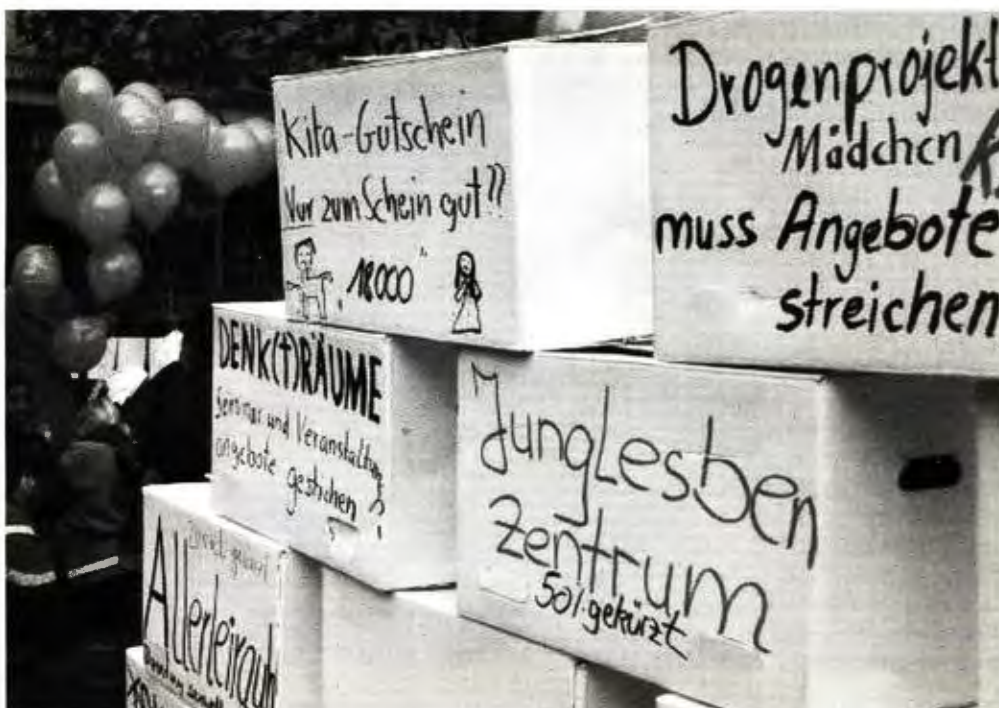 Kita-Gutschein
Nur zum Schein gut??
18000
Drogenprojekt
Mädchen
muss Angebote
streichen
DENK(T)RÄUME
Seminar und Veranstaltung
angebote gestrichen
JungLesben
Zentrum
50% gekürzt
Allerleirauh